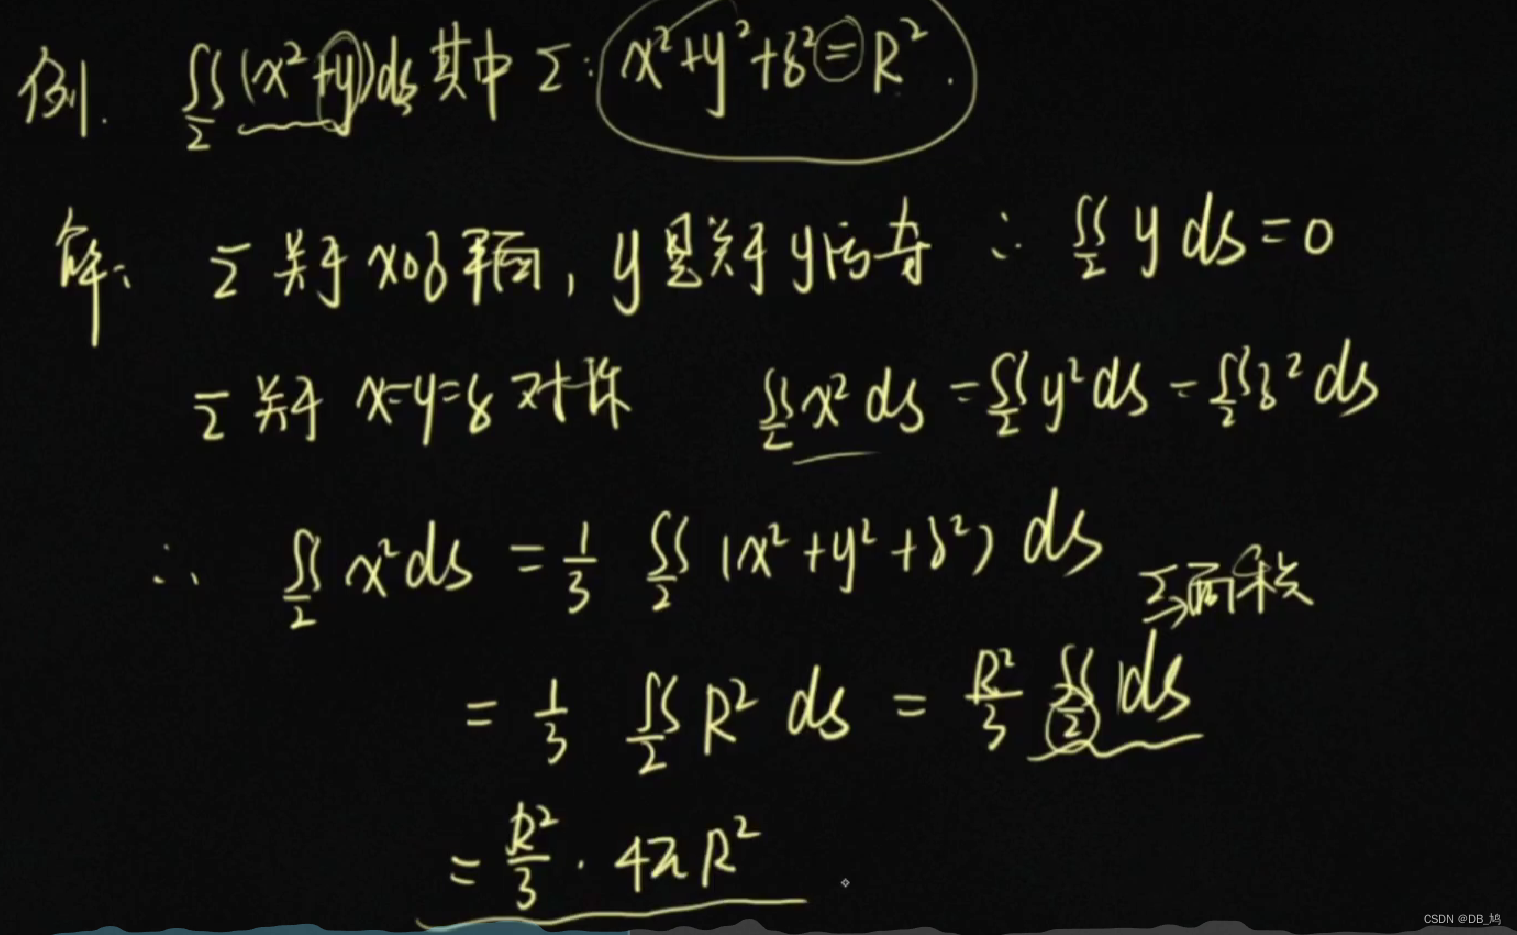 例. ∬_Σ (x²+y)ds 其中 Σ: x²+y²+z²=R².
解: Σ 关于 xoz 平面, y 是关于 y 的奇 ∴ ∬_Σ y ds = 0
Σ 关于 x=y=z 对称 ∬_Σ x² ds = ∬_Σ y² ds = ∬_Σ z² ds
∴ ∬_Σ x² ds = 1/3 ∬_Σ (x²+y²+z²) ds
Σ面积
= 1/3 ∬_Σ R² ds = R²/3 ∬_Σ 1ds
= R²/3 · 4πR²
CSDN @DB_鸠